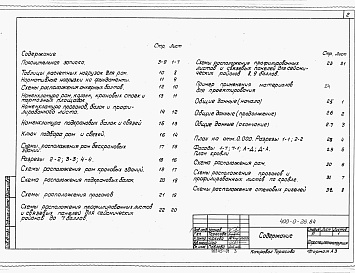 2
Стр. Лист
Содержание
Пояснительная записка. 3-9 1-7
Таблицы расчетных нагрузок для рам. 10 8
Нормативные нагрузки на фундаменты. 11 9
Схемы расположения анкерных болтов 12 10
Номенклатура рам, колонн, крановых стоек и 13 11
тормозных площадок
Номенклатура прогонов, балок и профи-
лированного листа. 14 12
Номенклатура подкрановых балок и связей 15 13
Ключ подбора рам и связей. 16 14
Схемы расположения рам бескрановых 17
зданий.
Разрезы 2-2; 3-3; 4-4. 18 16
Схемы расположения рам крановых зданий. 19 17
Схемы расположения подкрановых балок. 20 19
Схемы расположения прогонов 21 19
Схемы расположения профилированных листов 22 20
и связевых панелей для сейсмических
районов до 7 баллов.
Стр. Лист
Схемы расположения профилированных 23 21
листов и связевых панелей для сейсми-
ческих районов 8, 9 баллов.
Пример применения материалов 24
для проектирования
Общие данные (начало) 25 1
Общие данные (продолжение) 26 2
Общие данные (окончание) 27 3
План на отм. 0.000. Разрезы 1-1; 2-2 28 4
Фасады 1-7; 7-1; А-Д; Д-А. 29 5
План кровли
Схема расположения рам 30 6
Схемы расположения прогонов и
профилированных листов по кровле. 31 7
Схемы расположения стеновых ригелей 32 8
400-0-28.84
Содержание
Копировал Тарасова
Формат А3